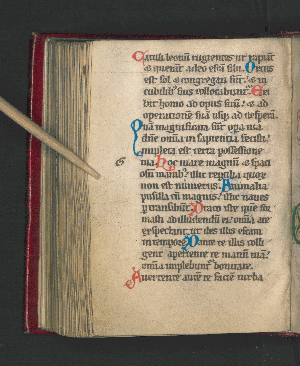 Catuli leonū rugientes ut rapiāt
& querāt a deo escā sibi. Ortus
est sol & congregati sūt. & in
cubilib; suis collocabunt᷑. Exi
bit homo ad opus suū. & ad
operationē suā usq; ad vesperā.
Quā magnificata sūt opa tua
dūe omīa in sapientia fecisti.
impleta est terra possessione
tua. Hoc mare magnū & spaci
osū manib; illic reptilia quoꝝ
non est numerus. Animalia
pusilla cū magnis. illic naues
ptransibūt. Draco iste quē for
masti ad illudendū ei. omīa a te
expectant ut des illis escam
in tempore. Dante te illis colli
gent aperiente te manū tuā.
omīa implebunt᷑ bonitate.
Auertente autē te faciē turba